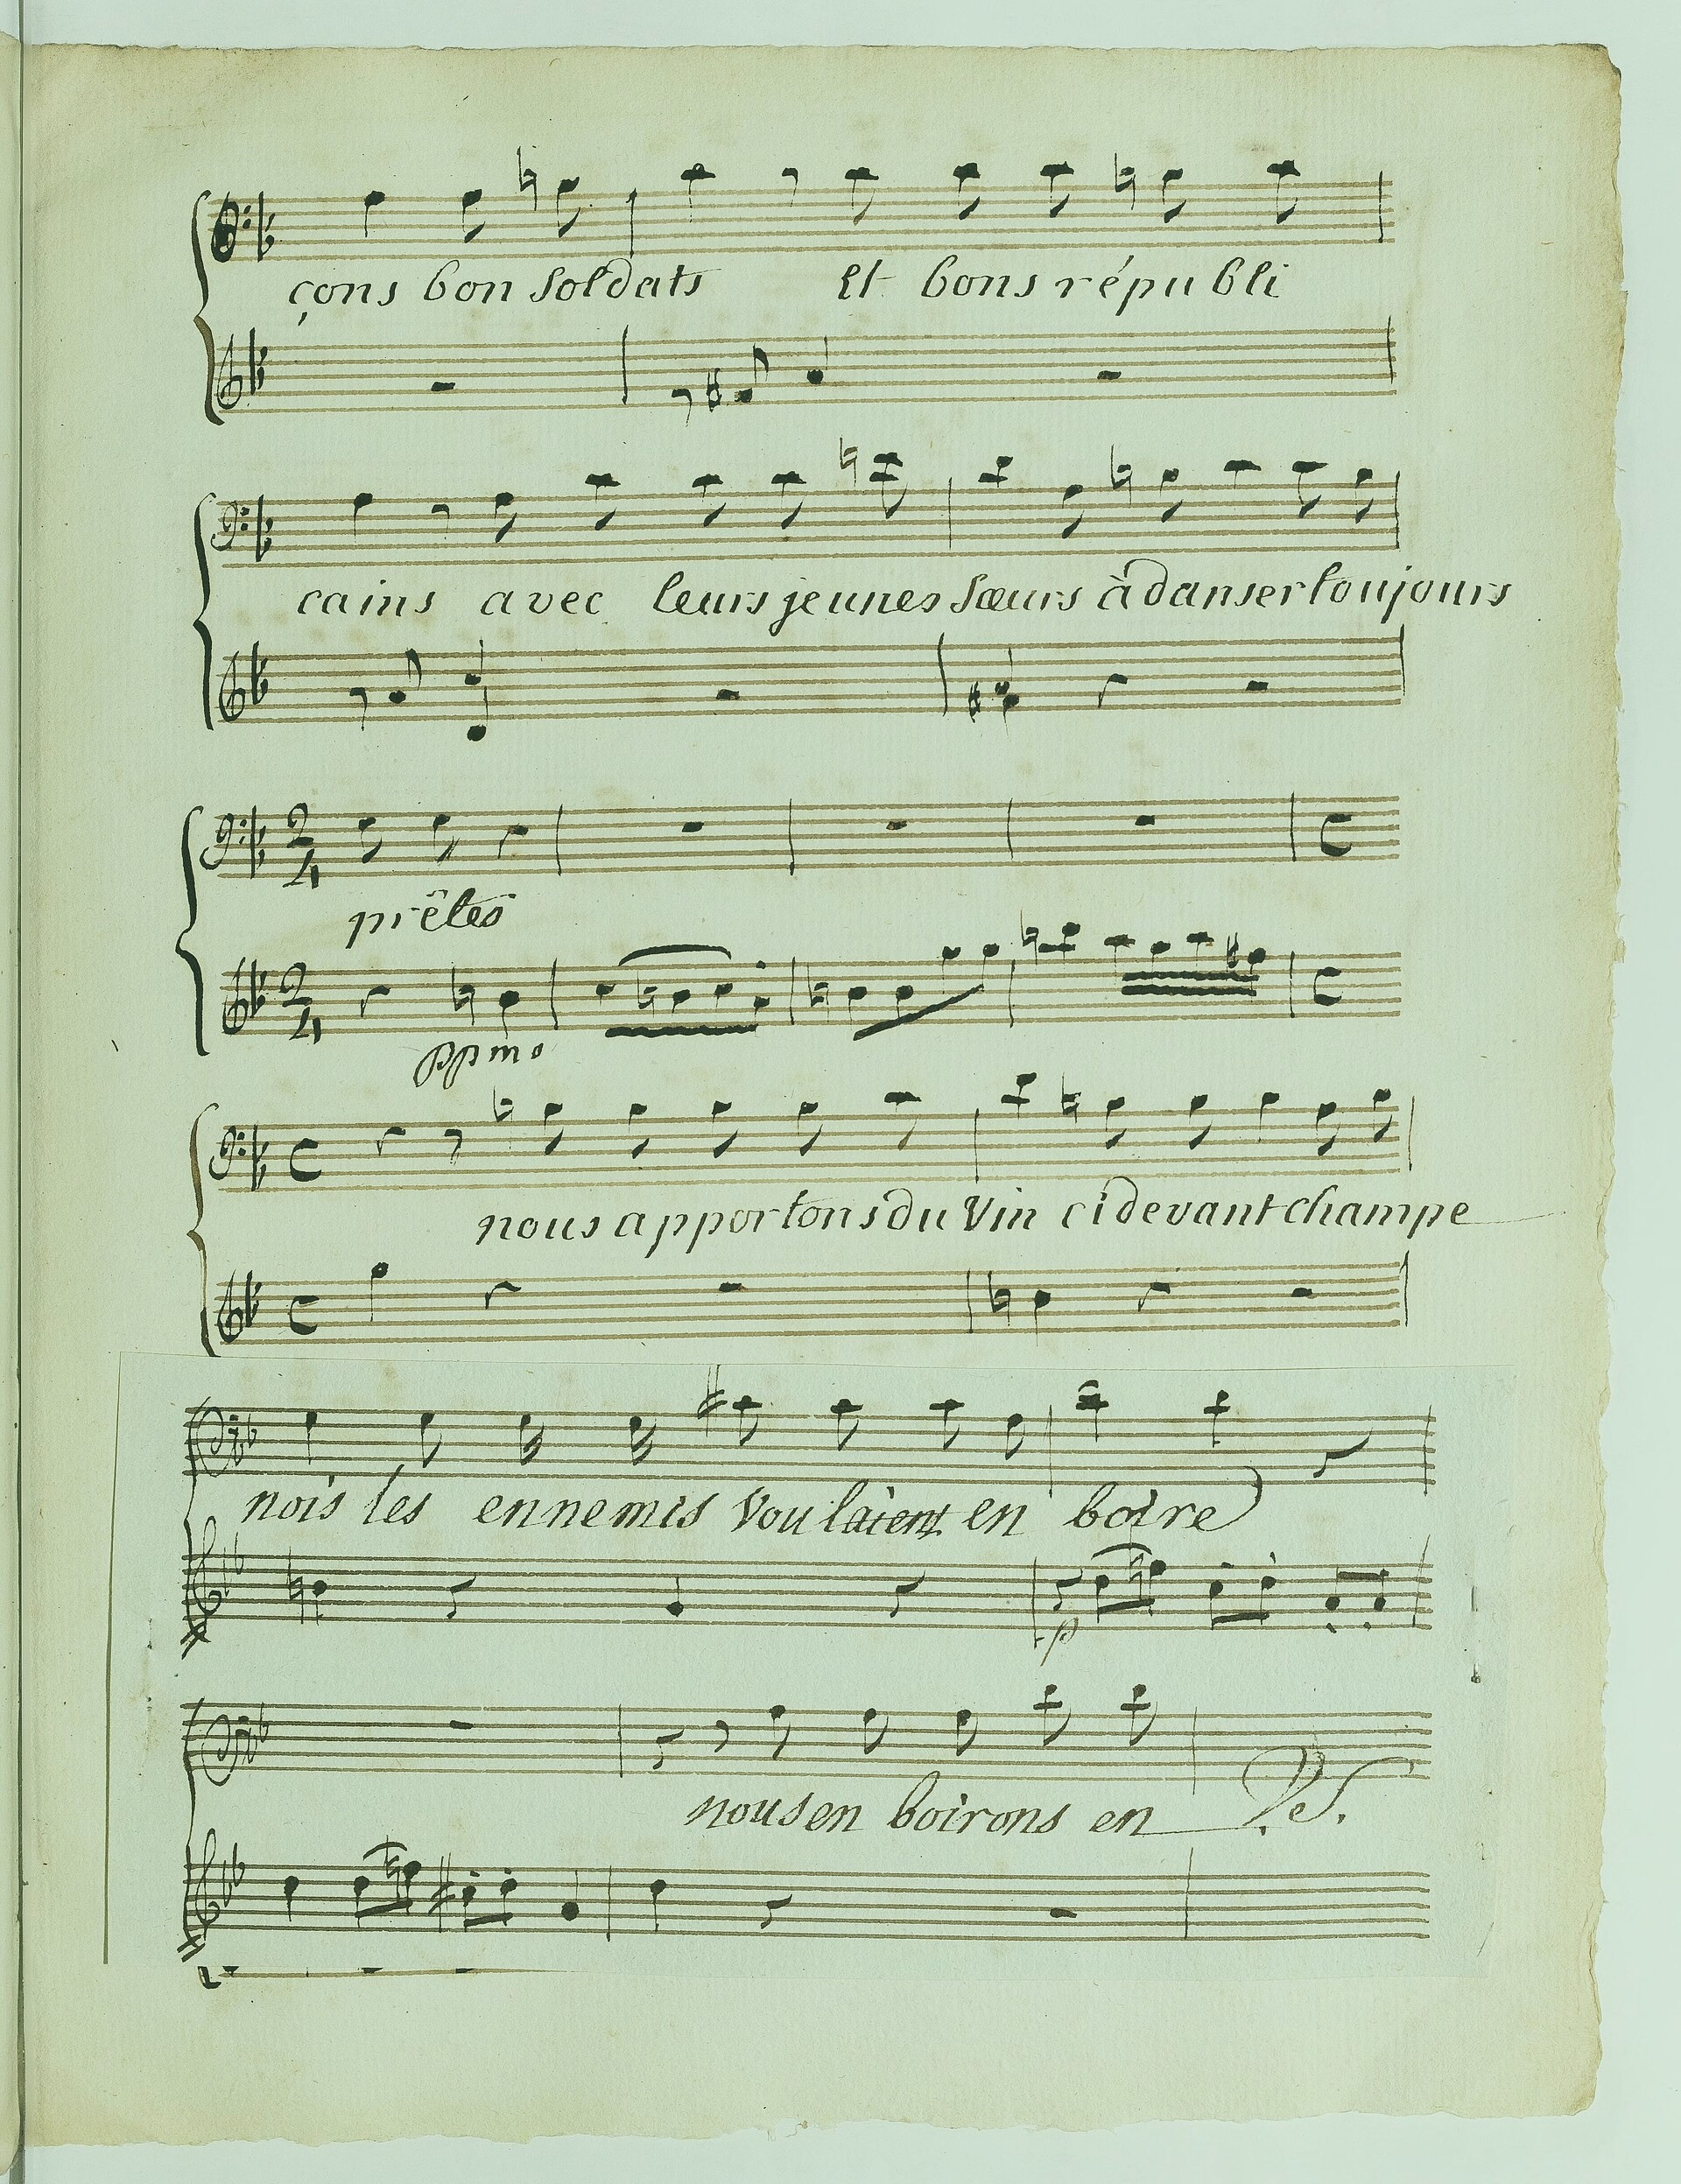 çons bon soldats Et bons républi
cains avec leurs jeunes sœurs à danser toujours
2/4
prêtes
2/4
ppmo
nous apportons du vin ci devant champe
nois les ennemis vou laient en boire
p
nous en boirons en